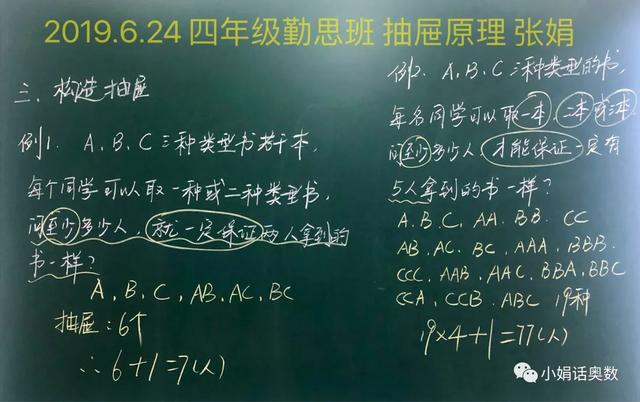 2019.6.24 四年级勤思班 抽屉原理 张娟
三、构造抽屉
例1. A、B、C三种类型书若干本,
每个同学可以取一种或二种类型书,
问至少多少人,就一定保证两人拿到的
书一样?
A、B、C、AB、AC、BC
抽屉:6个
∴6+1=7(人)
例2. A、B、C三种类型的书,
每名同学可以取一本、二本或三本,
问至少多少人,才能保证一定有
5人拿到的书一样?
A、B、C、AA、BB、CC
AB、AC、BC、AAA、BBB、
CCC、AAB、AAC、BBA、BBC
CCA、CCB、ABC 19种
19×4+1=77(人)
小娟话奥数